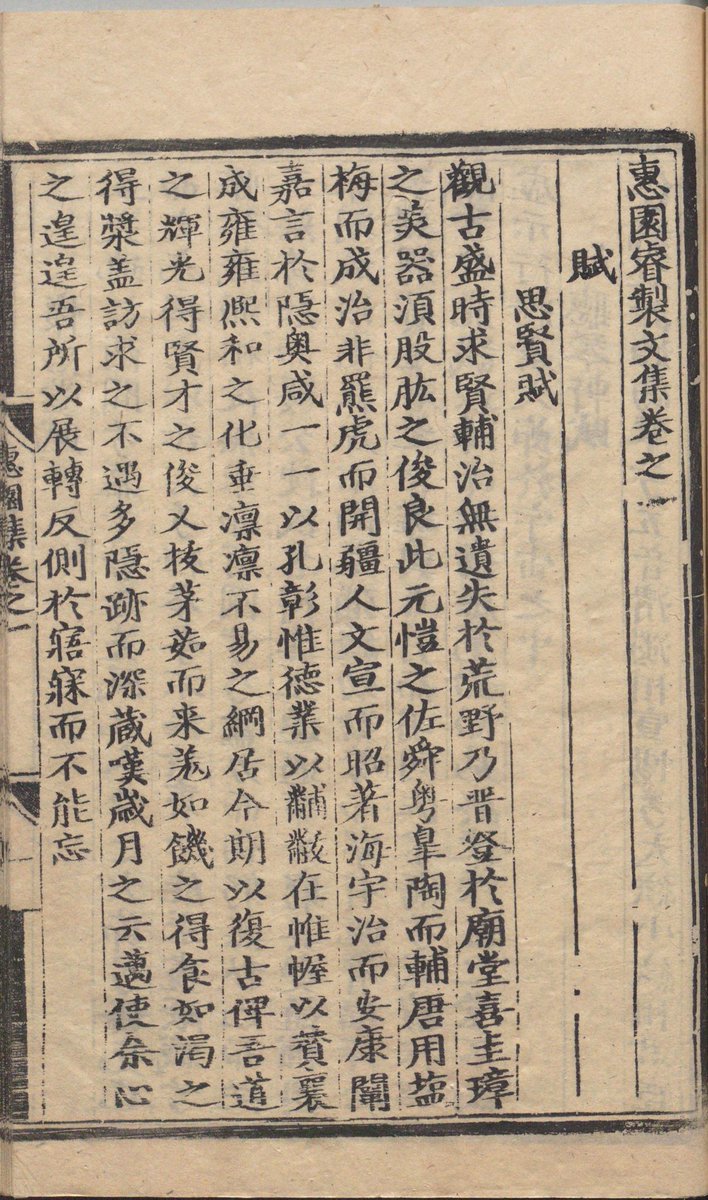 惠園睿製文集卷之一
賦
思賢賦
觀古盛時求賢輔治無遺失於荒野乃晋登於廟堂喜圭璋
之美器湏股肱之俊良此元愷之佐舜粤皐陶而輔唐用塩
梅而成治非羆虎而開疆人文宣而昭著海宇治而安康闡
嘉言於隠奥咸一一以孔彰惟德業以黼黻在帷幄以賛襄
成雍雍熈和之化垂凛凛不易之綱居今期以復古俾吾道
之輝光得賢才之俊乂抜茅茹而来羌如饑之得食如渴之
得漿盖訪求之不遇多隠跡而深蔵嘆歳月之云邁使余心
之遑遑吾所以展轉反側於寤寐而不能忘
惠園集卷之一